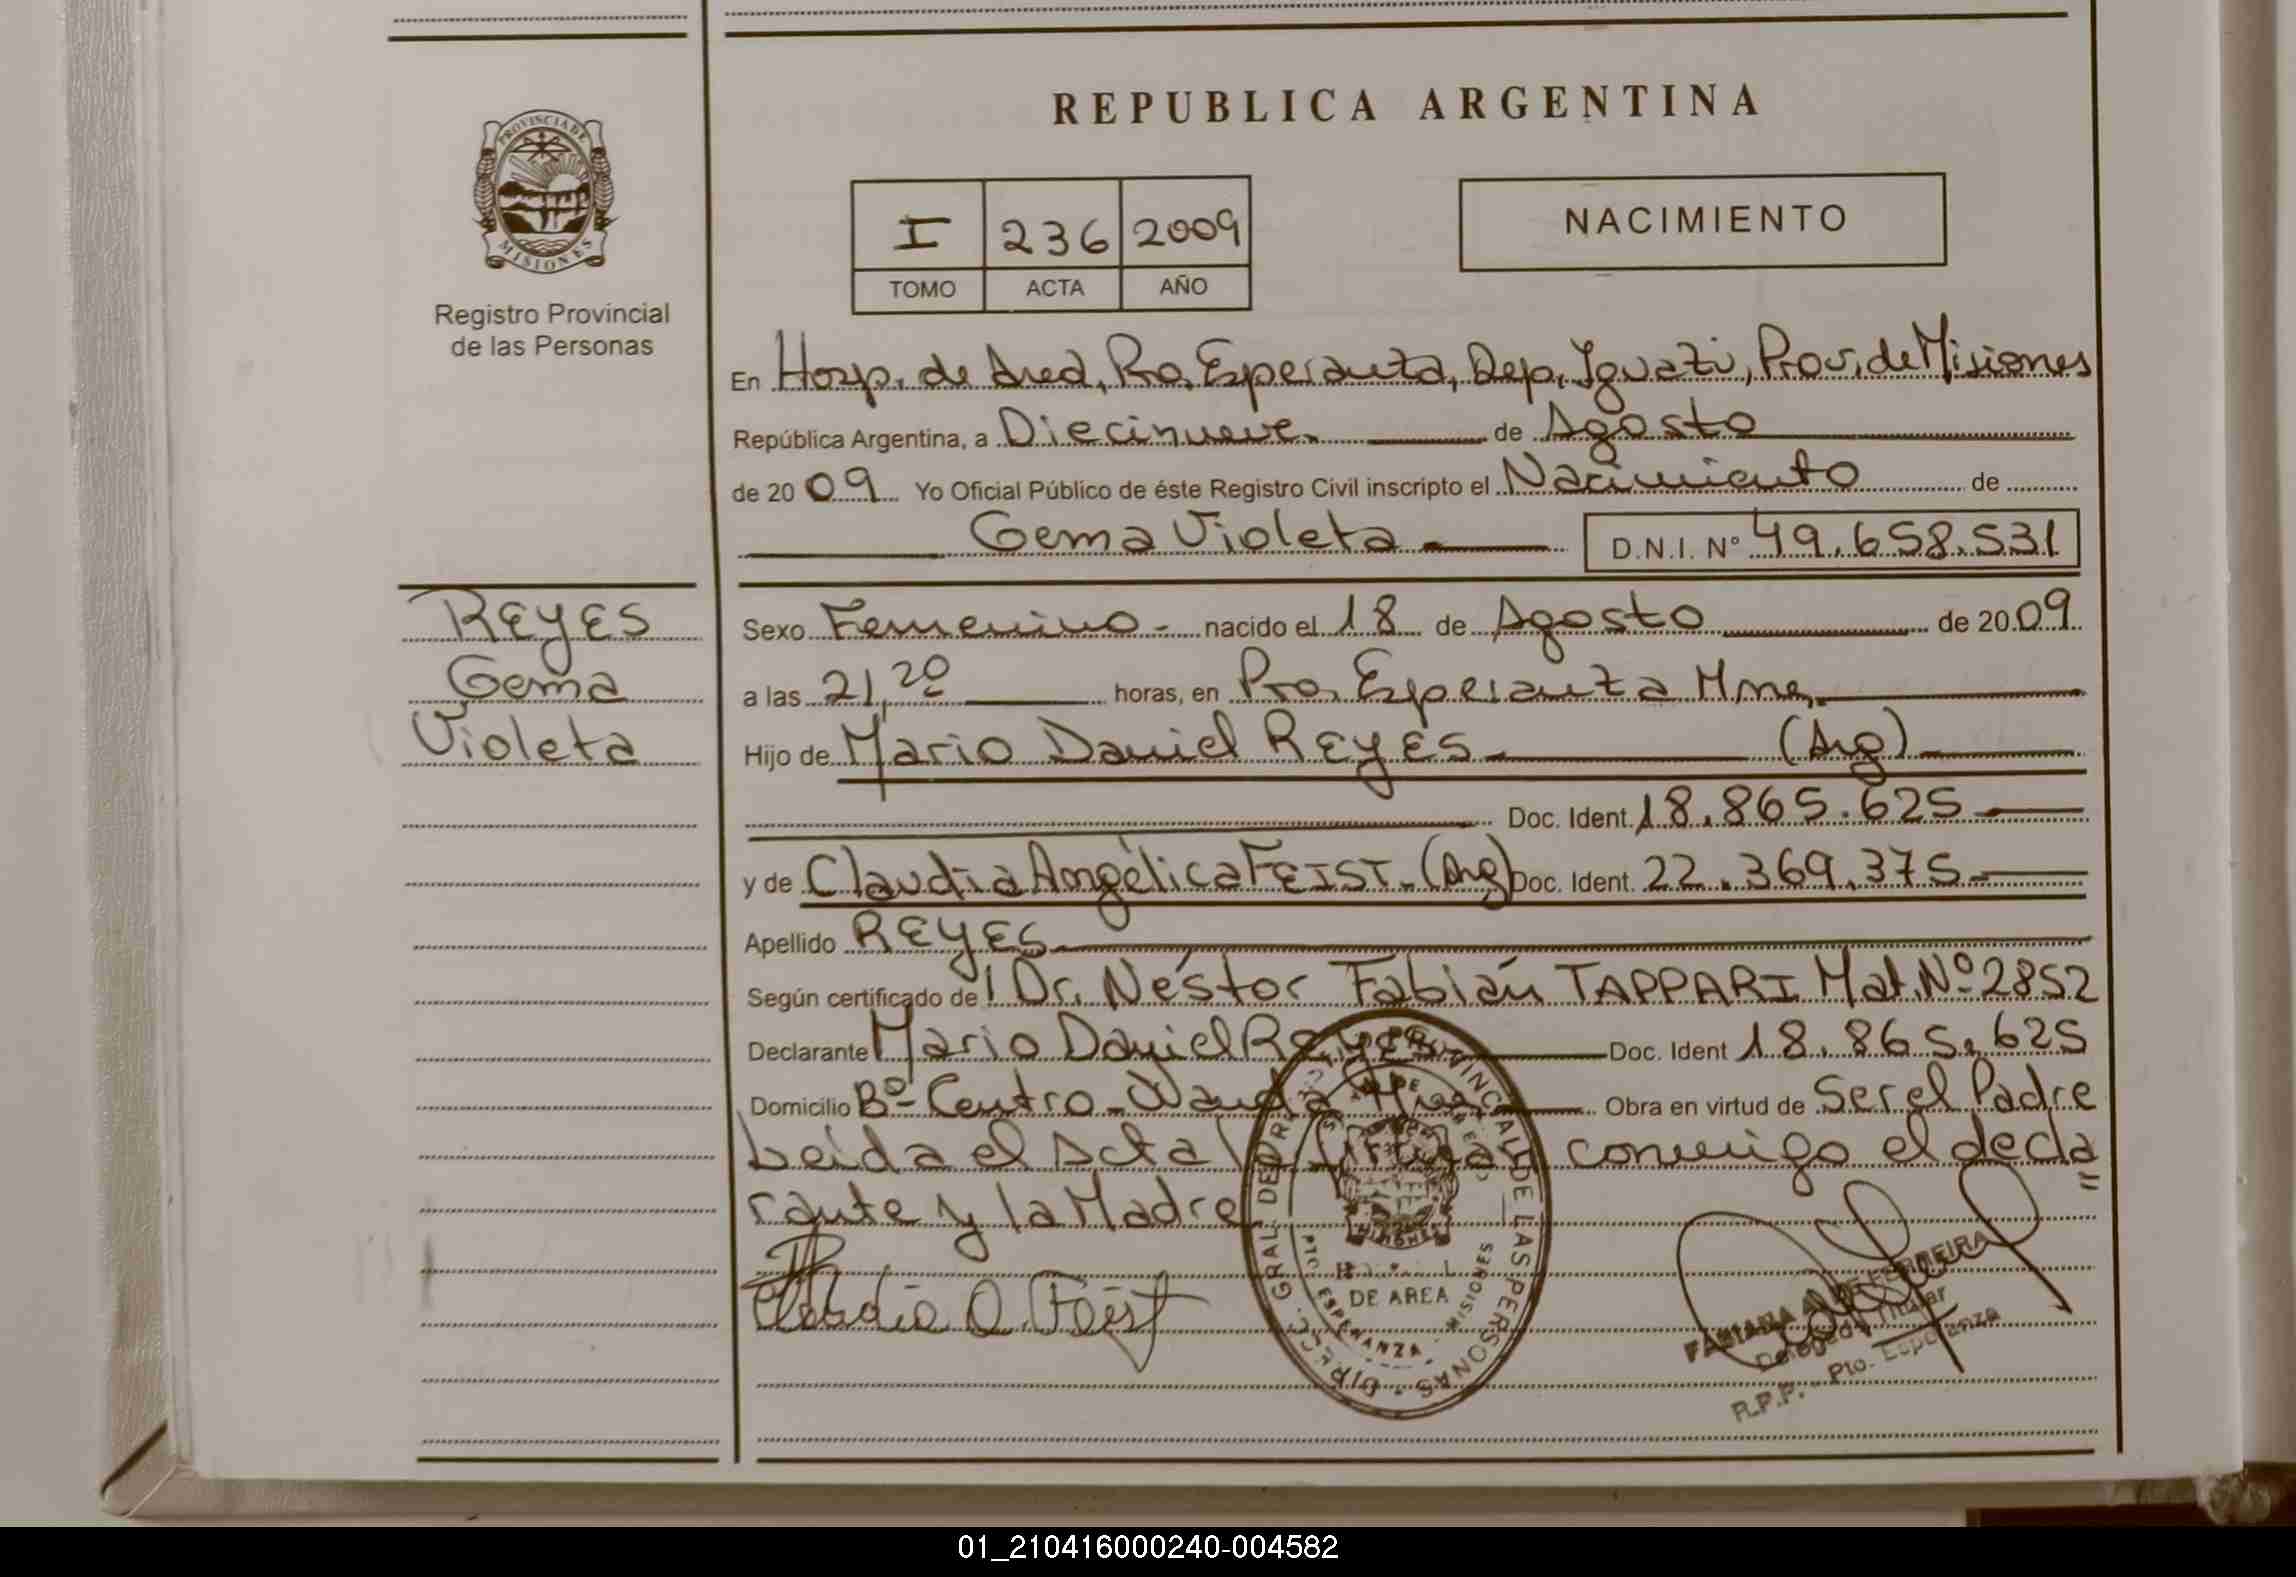 REPUBLICA ARGENTINA
PROVINCIA DE
MISIONES
Registro Provincial
de las Personas
I 236 2009
TOMO ACTA AÑO
NACIMIENTO
En Hosp. de Area, Pto. Esperanza, Dep. Iguazú, Prov. de Misiones
República Argentina, a Diecinueve de Agosto
de 2009 Yo Oficial Público de éste Registro Civil inscripto el Nacimiento de
Gema Violeta D.N.I. N° 49.658.531
REYES
Gema
Violeta
Sexo Femenino - nacido el 18 de Agosto de 2009
a las 21,20 horas, en Pto. Esperanza Mnes.
Hijo de Mario Daniel REYES (Arg)
Doc. Ident. 18.865.625
y de Claudia Angélica FEIST. (Arg) Doc. Ident. 22.369.375
Apellido REYES
Según certificado de Dr. Néstor Fabián TAPPARI Mat. Nº 2852
Declarante Mario Daniel Reyes Doc. Ident 18.865.625
Domicilio Bº Centro - Wanda Mnes Obra en virtud de Ser el Padre
Leída el Acta la firman conmigo el decla=
rante y la Madre
Claudia A. Feist
DIREC. GRAL. DEL REG. PROVINCIAL DE LAS PERSONAS
MISIONES
DE AREA
PTO. ESPERANZA - MISIONES
FABIANA DE FERREIRA
Delegada Titular
R.P.P. - Pto. Esperanza
01_210416000240-004582